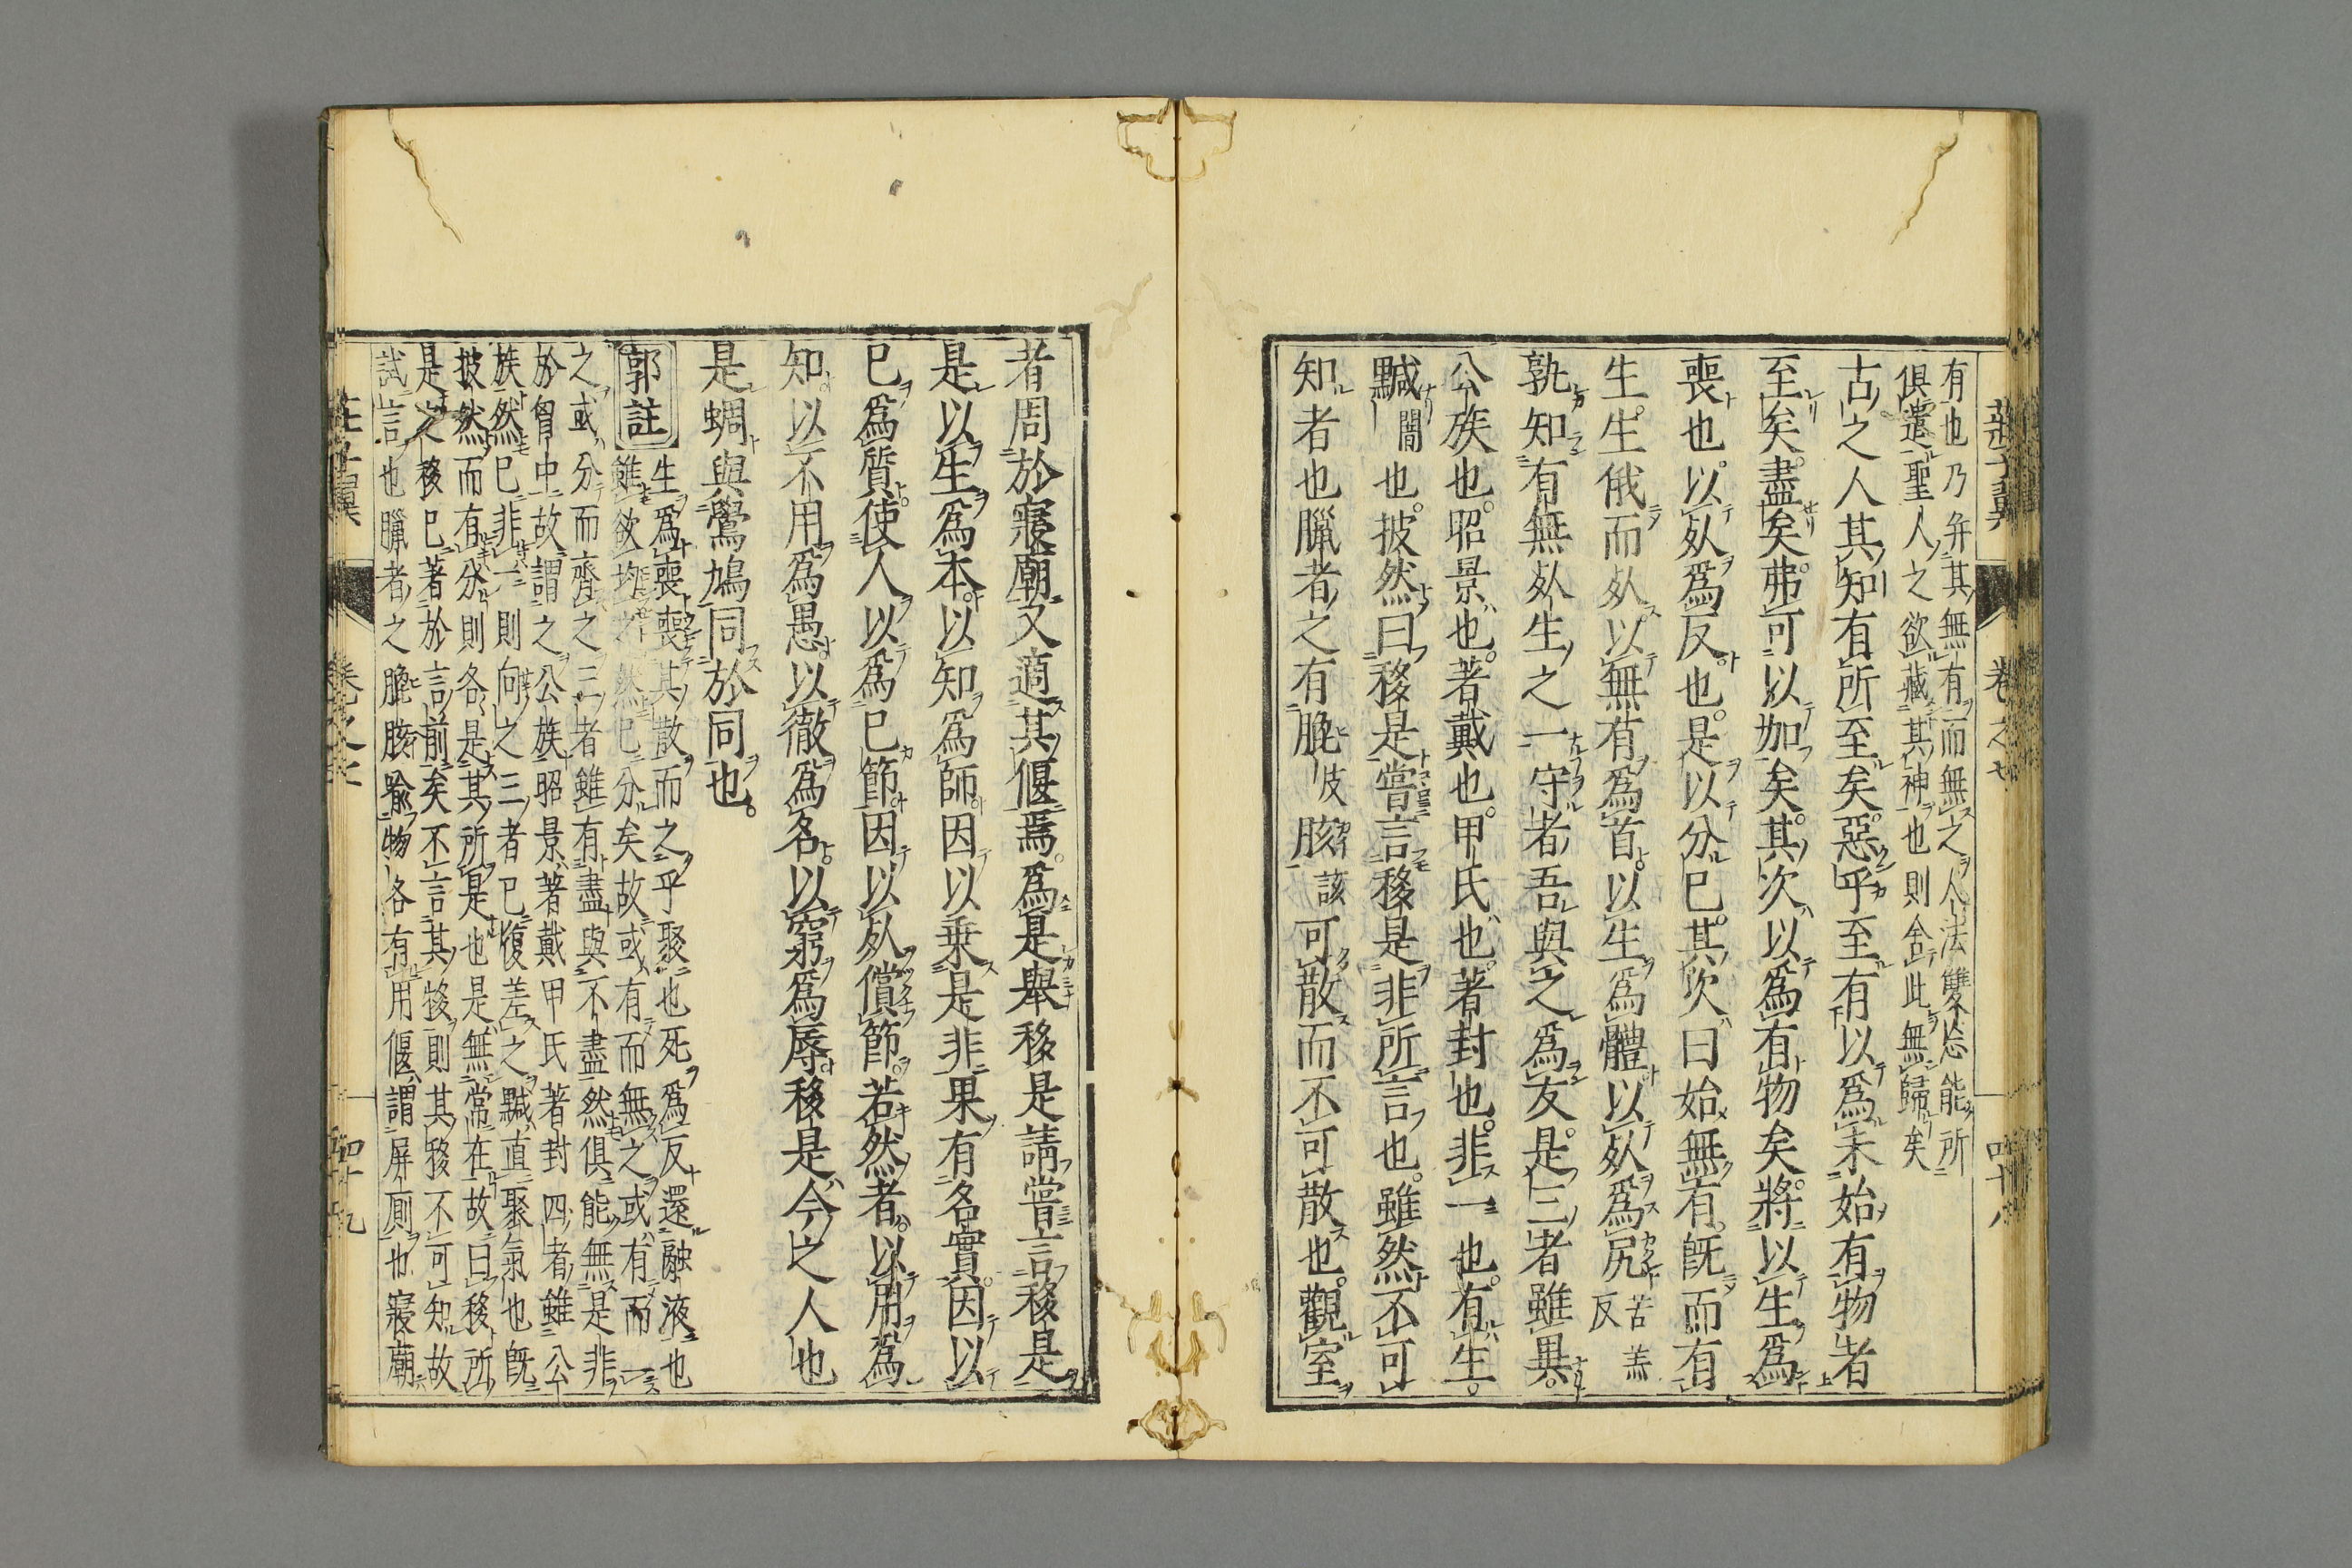 莊子翼
卷之七
四十八
有也乃并其無有而無之人法雙忘能所
俱遣聖人之欲藏其神也則舍此無歸矣
古之人其知有所至矣惡乎至有以爲未始有物者
至矣盡矣弗可以加矣其次以爲有物矣將以生爲
喪也以死爲反也是以分已其次曰始無有旣而有
生生俄而死以無有爲首以生爲體以死爲尻苦羔反
孰知有無死生之一守者吾與之爲友是三者雖異
公族也昭景也著戴也甲氏也著封也非一也有生
黬闇也披然曰移是嘗言移是非所言也雖然不可
知者也臘者之有膍皮胲該可散而不可散也觀室
者周於寢廟又適其偃焉爲是舉移是請嘗言移是
是以生爲本以知爲師因以乗是非果有名實因以
已爲質使人以爲已節因以死償節若然者以用爲
知以不用爲愚以徹爲名以窮爲辱移是今之人也
是蜩與鷽鳩同於同也
郭註
生爲喪喪其散而之乎聚也死爲反還融液也
雖欲均之然已分矣故或有而無之或有而一
之或分而齊之三者雖有盡與不盡然俱能無是非
於胷中故謂之公族昭景著戴甲氏著封四者雖公
族然已非一則向之三者已復差之黬直聚氣也旣
披然而有分則各是其所是也是無常在故曰移所
是之移已著於言前矣不言其移則其移不可知故
試言也臘者之膍胲喻物各有用偃謂屏厠也寢廟
莊子翼
卷之七
四十九